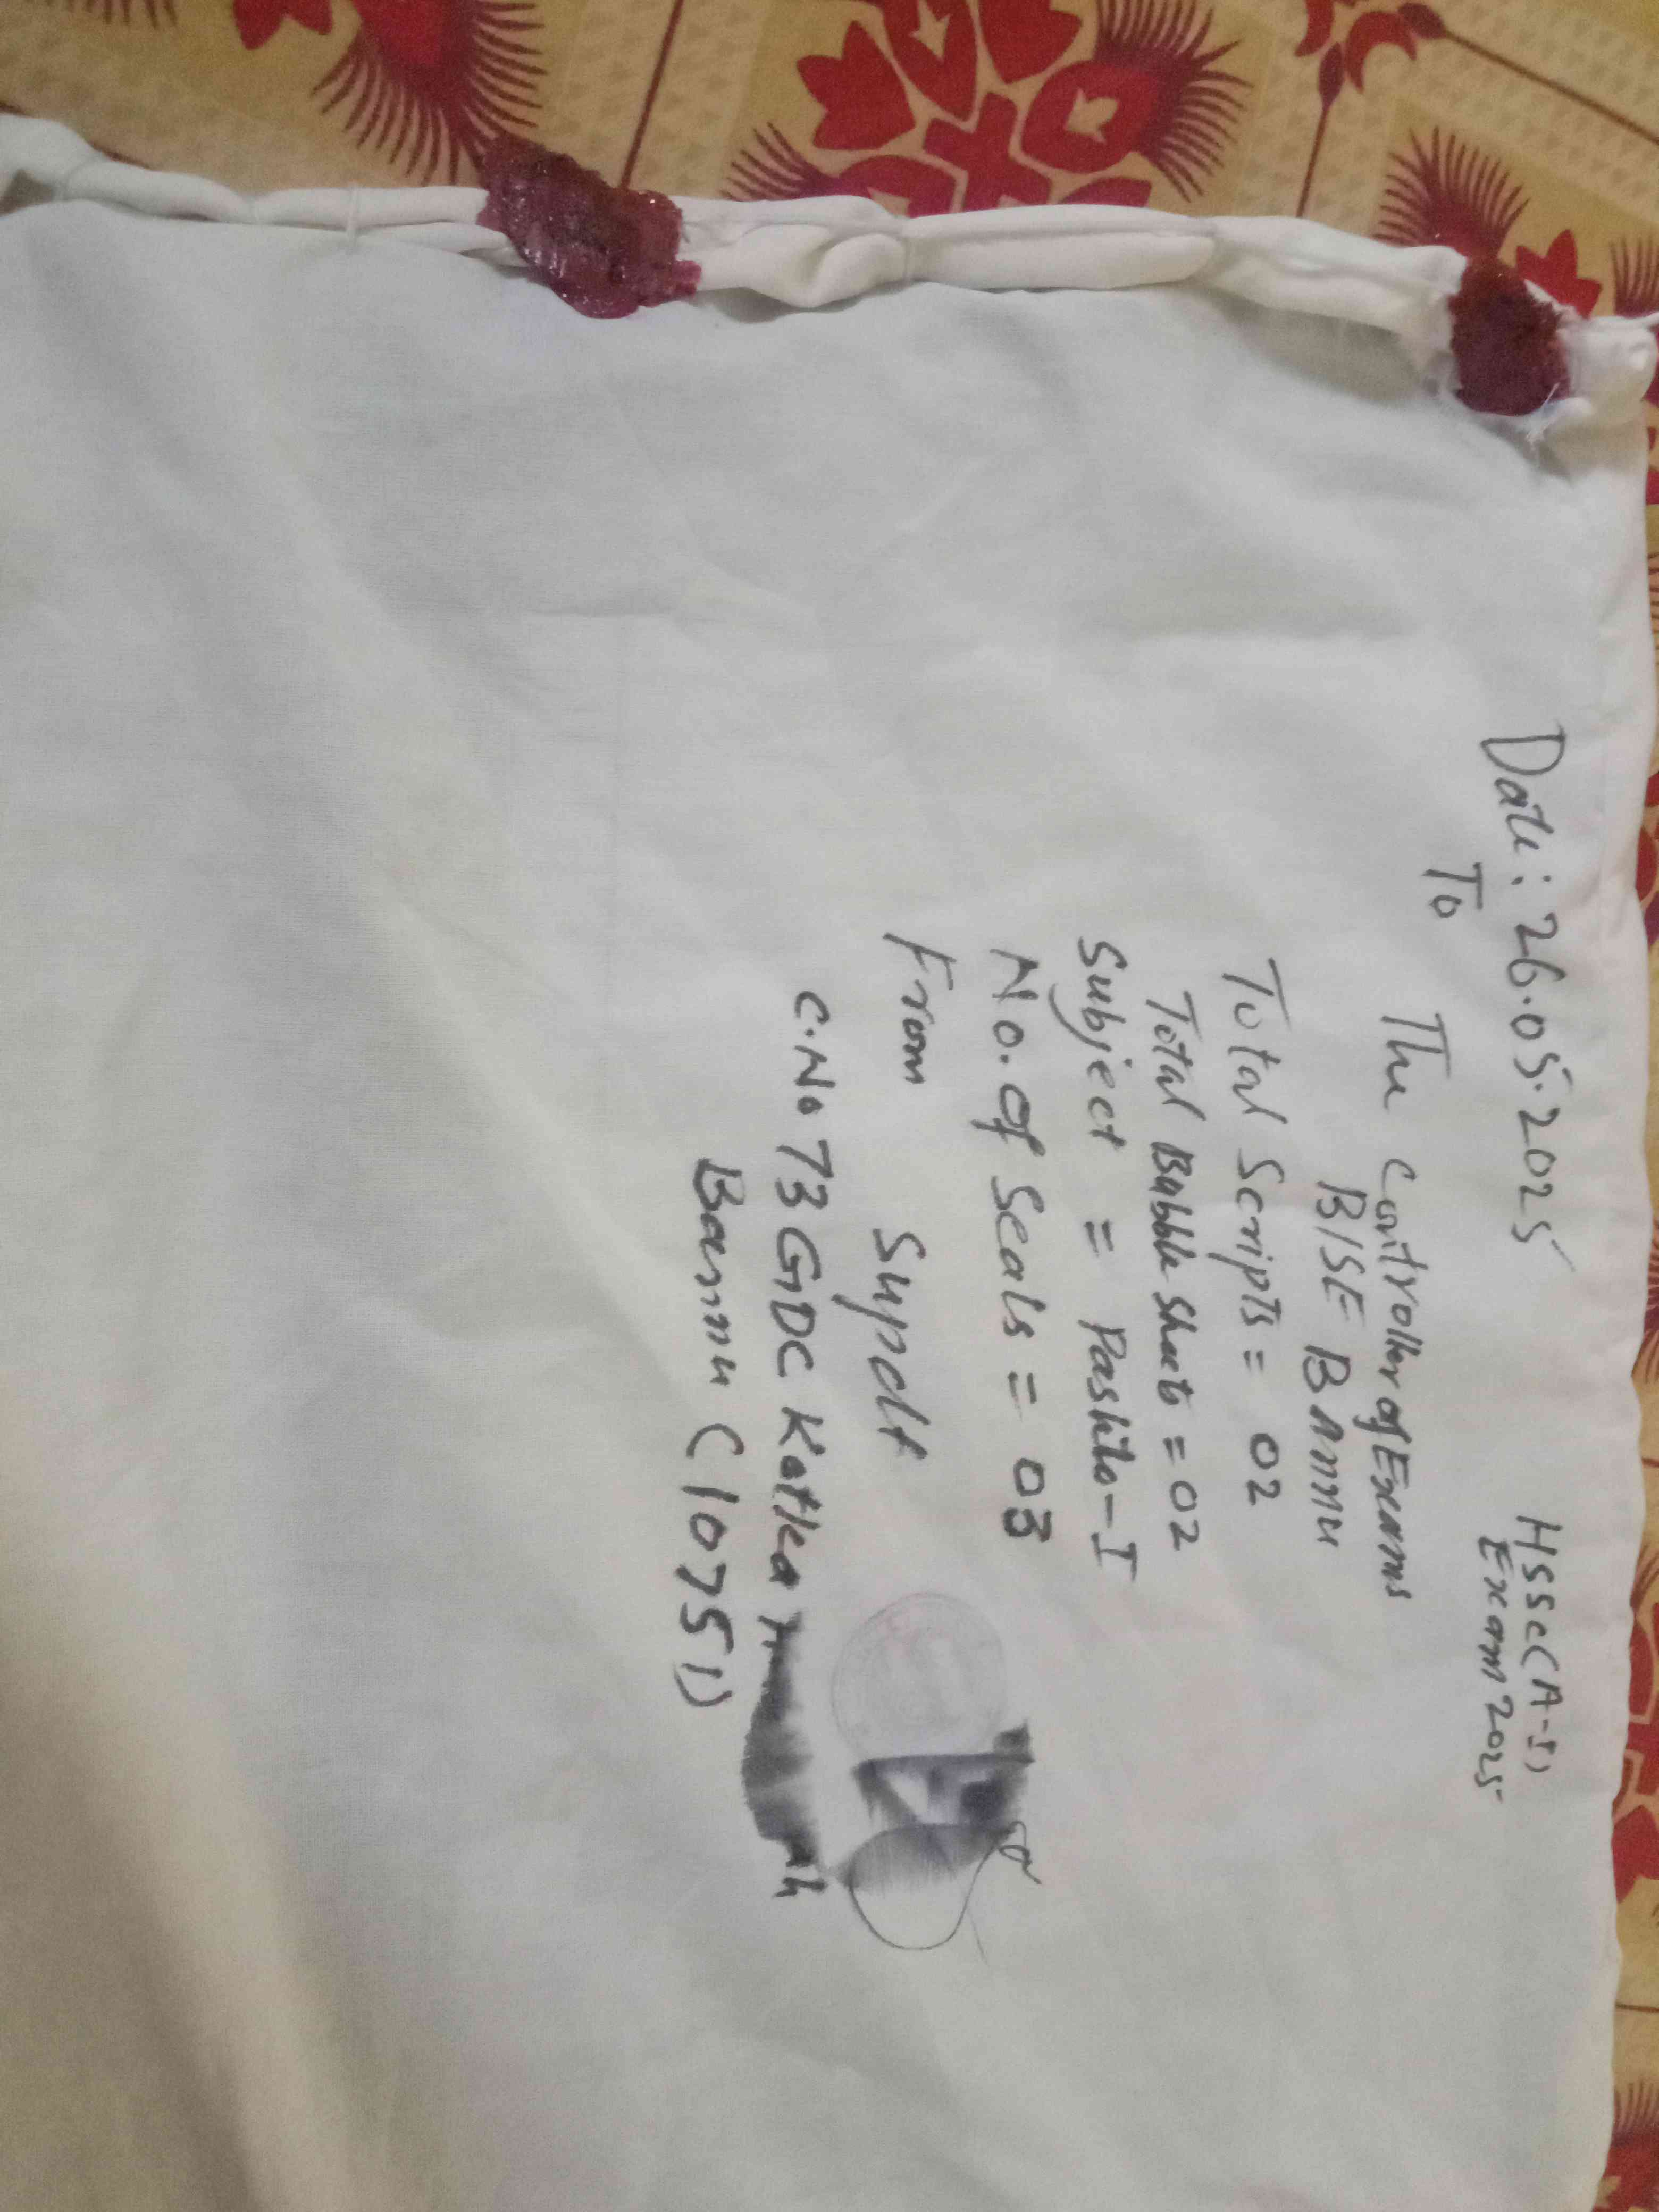 Date: 26.05.2025
HSSC(A-I)
Exam 2025
To
The Controller of Exams
BISE Bannu
Total Scripts = 02
Total Bubble Sheets = 02
Subject = Pashto-I
No. of Seals = 03
From
Supdt
C.No 73 GDC Kotka
Bannu (10751)